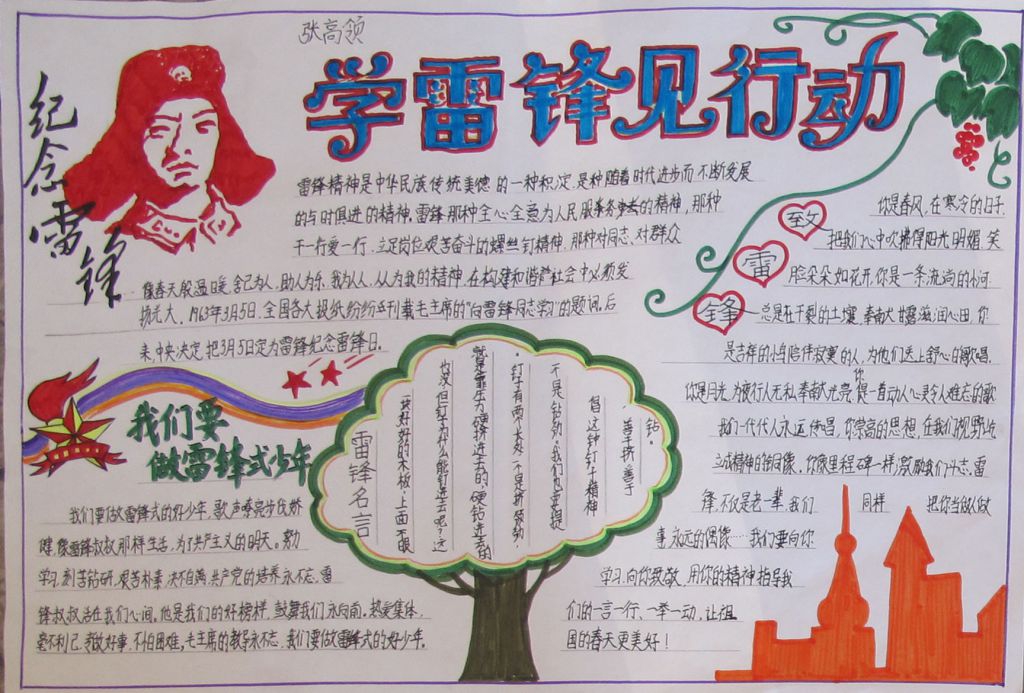 张高领
学雷锋见行动
纪念雷锋
雷锋精神是中华民族传统美德的一种积淀,是种随着时代进步而不断发展
的与时俱进的精神,雷锋那种全心全意为人民服务的精神,那种
干一行爱一行、立足岗位艰苦奋斗的螺丝钉精神,那种对同志、对群众
像春天般温暖、舍己为人、助人为乐、我为人人、人人为我的精神,在构建和谐社会中必须发
扬光大。1963年3月5日,全国各大报纸纷纷刊载毛主席的“向雷锋同志学习”的题词,后
来,中央决定,把3月5日定为雷锋纪念雷锋日。
致
雷
锋
你是春风,在寒冷的日子,
把我们心中吹拂得阳光明媚,笑
脸朵朵如花开,你是一条流淌的小河
总是在干裂的土壤,奉献甘露滋润心田,你
是吉祥的小鸟陪伴寂寞的人,为他们送上舒心的歌唱,
你是月光,为夜行人无私奉献光亮,你是一首动人心灵令人难忘的歌
我们一代代人永远传唱,你崇高的思想,在我们视野屹
立成精神的铜像,你像里程碑一样,激励我们斗志,雷
锋,不仅是老一辈,我们 同样 把你当做做
事永远的偶像……我们要向你
学习,向你致敬,用你的精神指导我
们的一言一行、一举一动,让祖
国的春天更美好!
我们要
做雷锋式少年
我们要做雷锋式的好少年,歌声嘹亮步伐矫
健,像雷锋叔叔那样生活,为了共产主义的明天。努力
学习,刻苦钻研,艰苦朴素,决不自满,共产党的培养永不忘,雷
锋叔叔活在我们心间,他是我们的好榜样,鼓舞我们永向前。热爱集体,
毫不利己,我做好事,不怕困难,毛主席的教导永不忘,我们要做雷锋式的好少年。
雷锋名言
一块好好的木板,上面不眼
也没,但钉子为什么能钉进去呢?这
就是靠压力硬挤进去的,硬钻进去的
。钉子有两个长处:一个是挤劲,
不是钻劲,我们也要提
倡这种钉子精神
,善于挤,善于
钻。